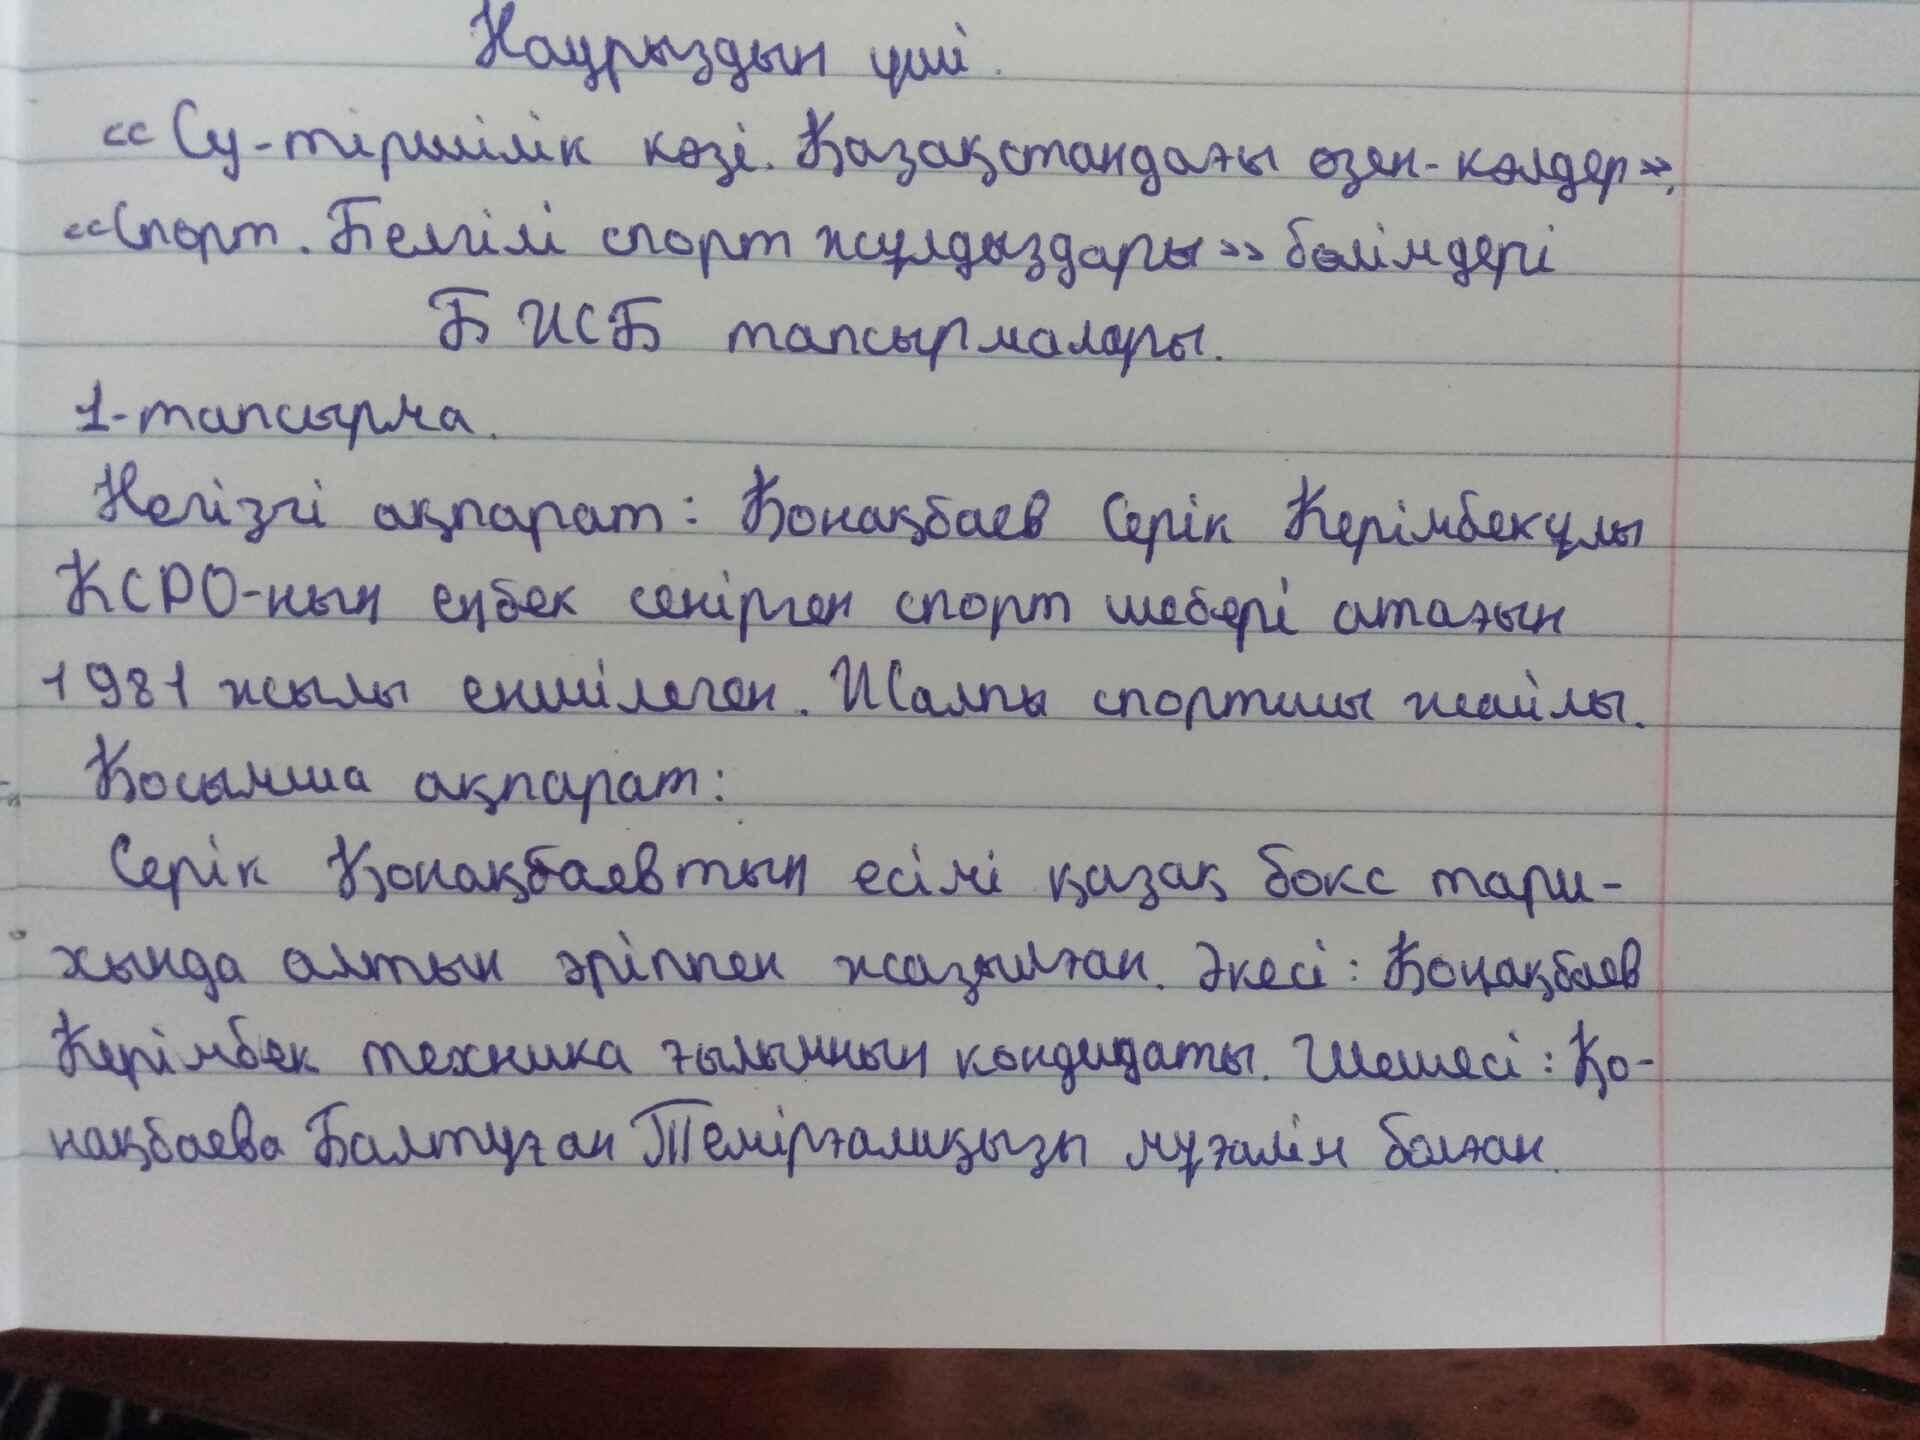 Наурыздың үші.
«Су-тіршілік көзі. Қазақстандағы өзен-көлдер»,
«Спорт. Белгілі спорт жұлдыздары» бөлімдері
БЖСБ тапсырмалары.
1-тапсырма.
Негізгі ақпарат: Қонақбаев Серік Керімбекұлы
КСРО-ның еңбек сеңірген спорт шебері атағын
1981 жылы еншілеген. Жалпы спортшы жайлы.
Қосымша ақпарат:
Серік Қонақбаевтың есімі қазақ бокс тари-
хында алтын әріппен жазылған. Әкесі: Қонақбаев
Керімбек техника ғылымның кондидаты. Шешесі: Қо-
нақбаева Балтуған Теміргалиқызы мұғалім болған.